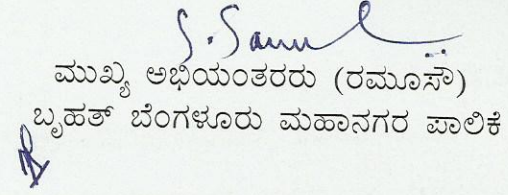 ಮುಖ್ಯ ಅಭಿಯಂತರರು (ರಮೂಸೌ)
ಬೃಹತ್ ಬೆಂಗಳೂರು ಮಹಾನಗರ ಪಾಲಿಕೆ